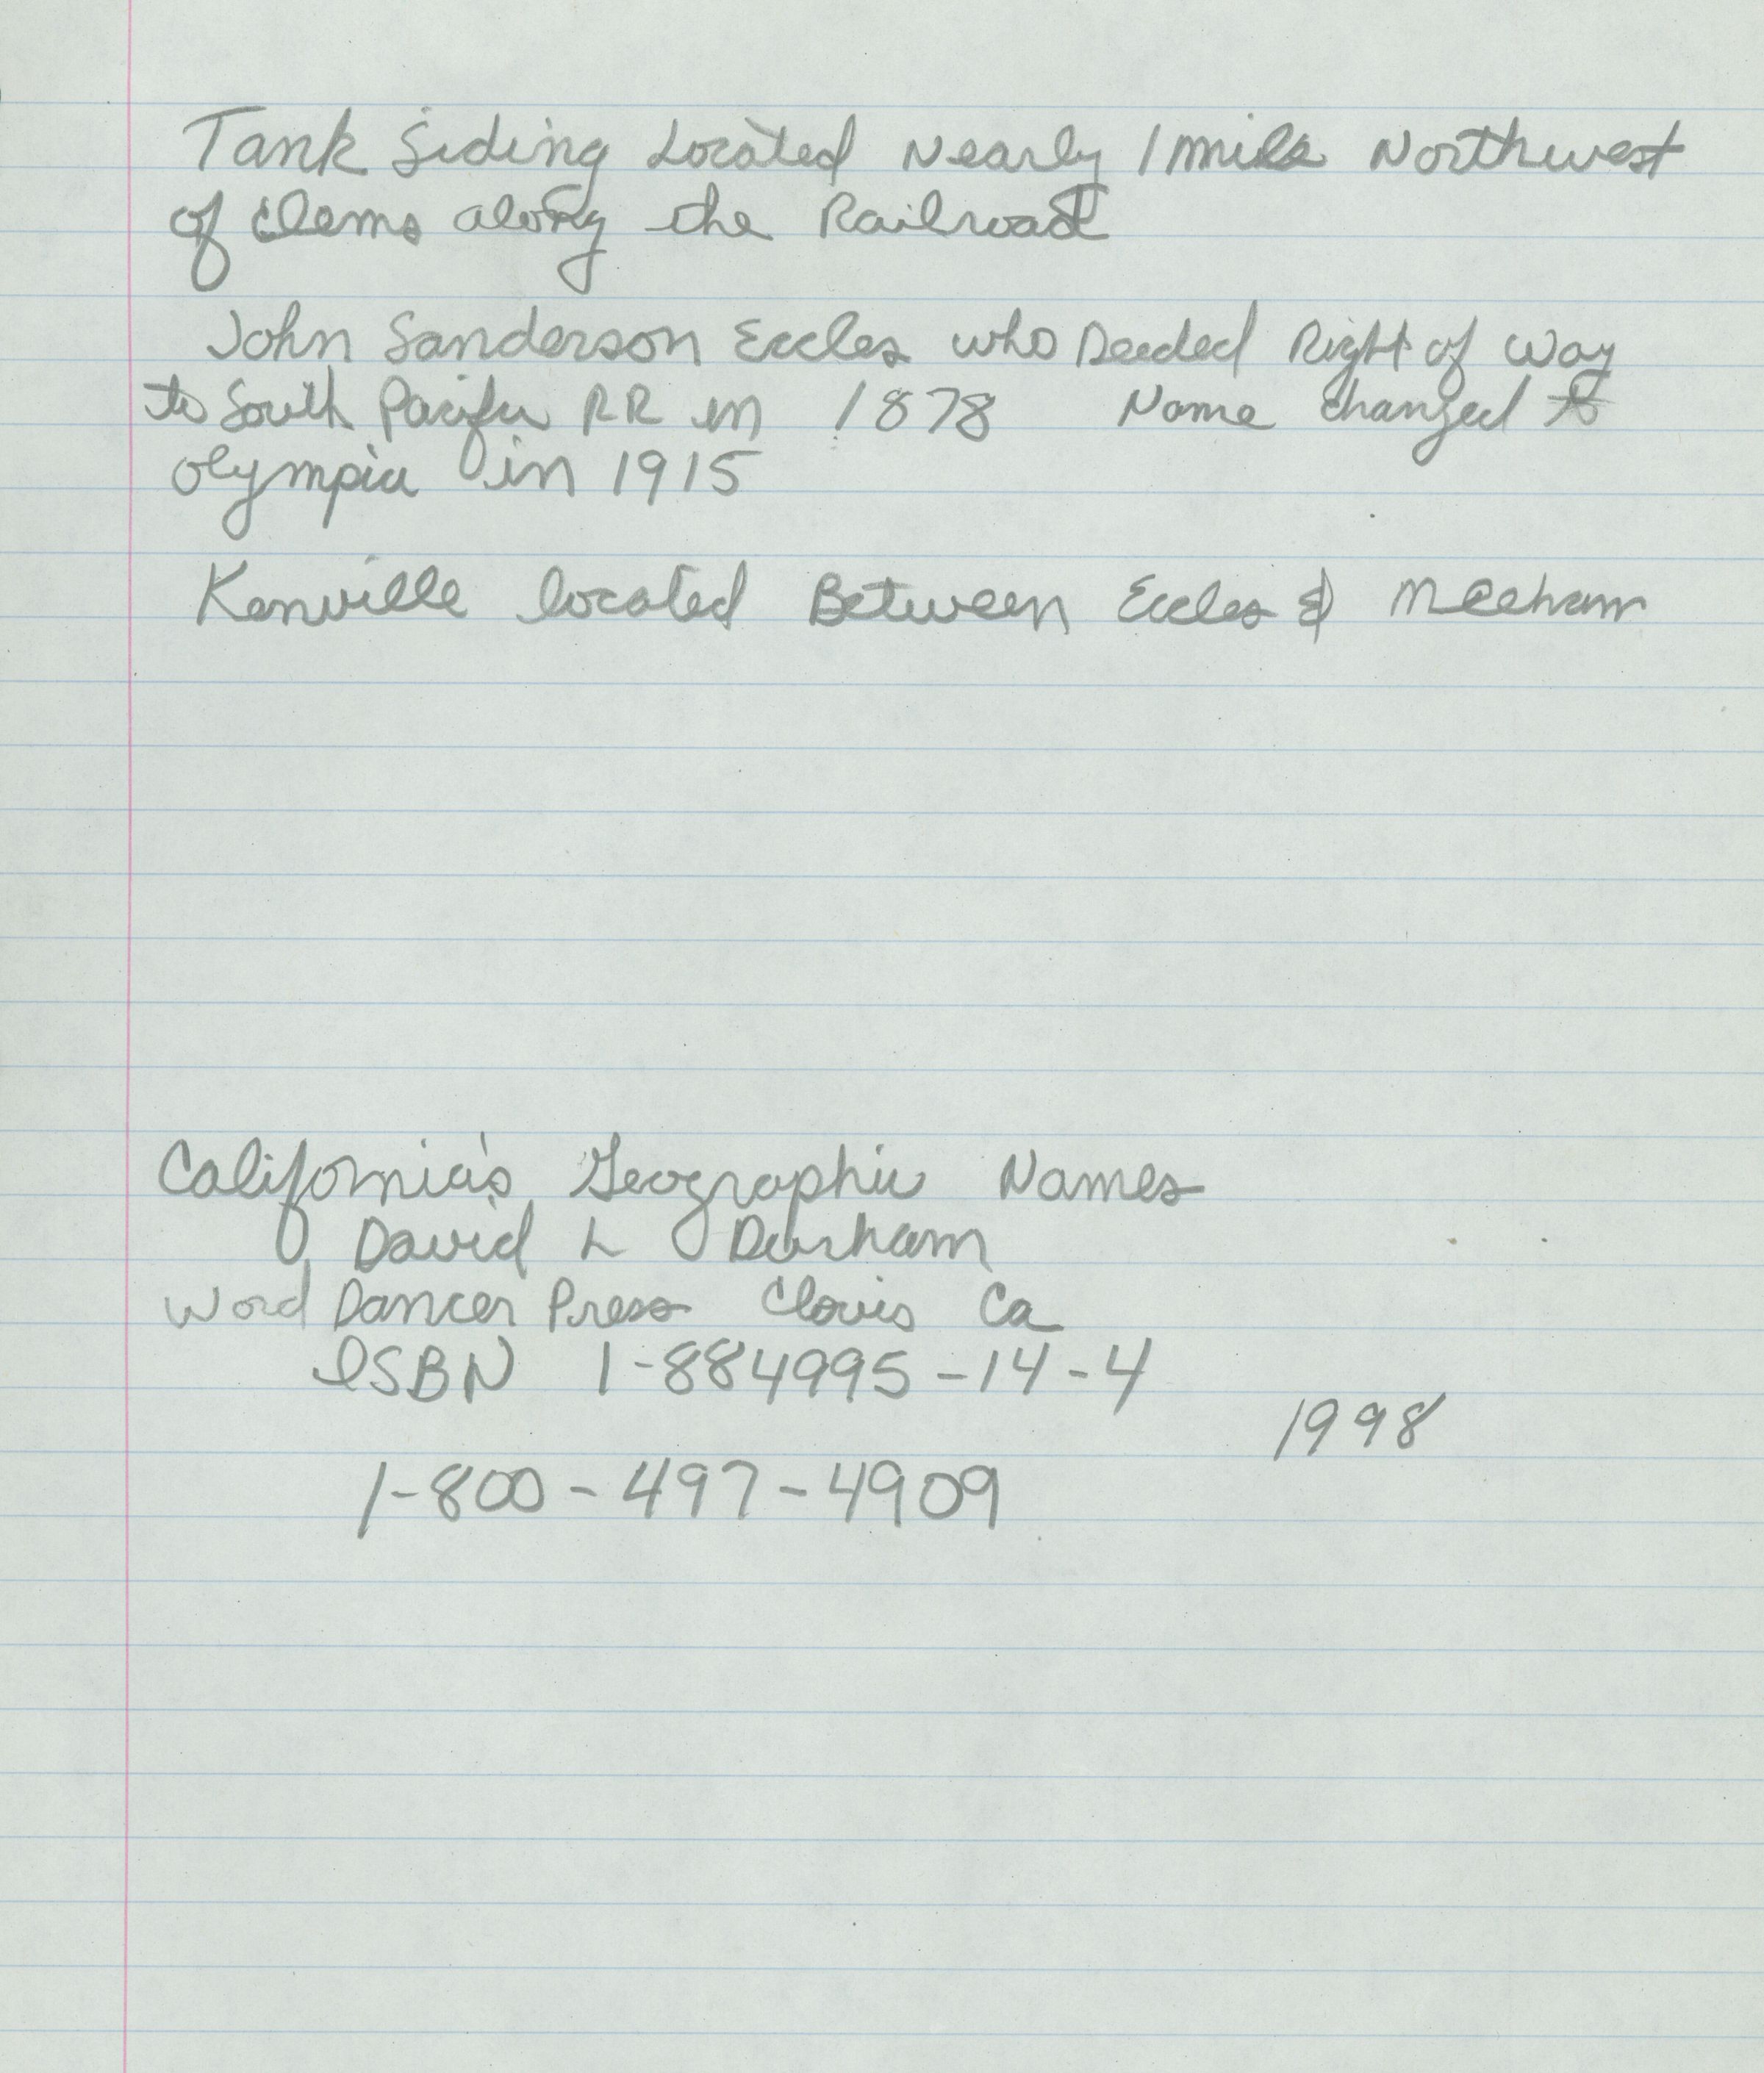 Tank Siding Located Nearly 1 mile Northwest
of Clems along the Railroad
John Sanderson Eccles who Deeded Right of Way
to South Pacific RR in 1878 Name changed to
Olympia in 1915
Kenville located Between Eccles & Meehan
California's Geographic Names
David L Durham
Word Dancer Press Clovis Ca
ISBN 1-884995-14-4
1998
1-800-497-4909